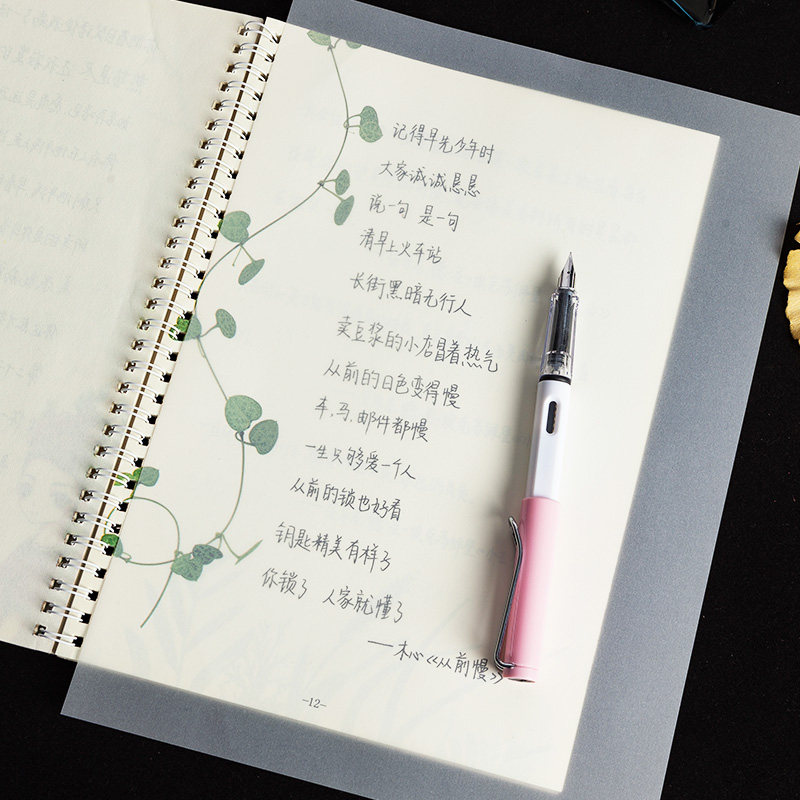 记得早先少年时
大家诚诚恳恳
说一句 是一句
清早上火车站
长街黑暗无行人
卖豆浆的小店冒着热气
从前的日色变得慢
车,马,邮件都慢
一生只够爱一个人
从前的锁也好看
钥匙精美有样子
你锁了 人家就懂了
—木心《从前慢》
-12-